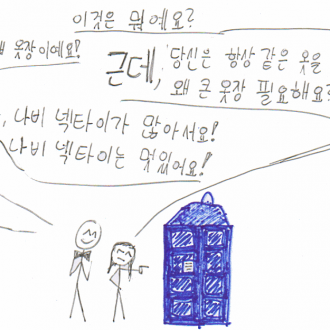 이것은 뭐예요?
옷장이예요!
근데, 당신은 항상 같은 옷을
왜 큰 옷장 필요해요?
나비 넥타이가 많아서요!
나비 넥타이는 멋있어요!